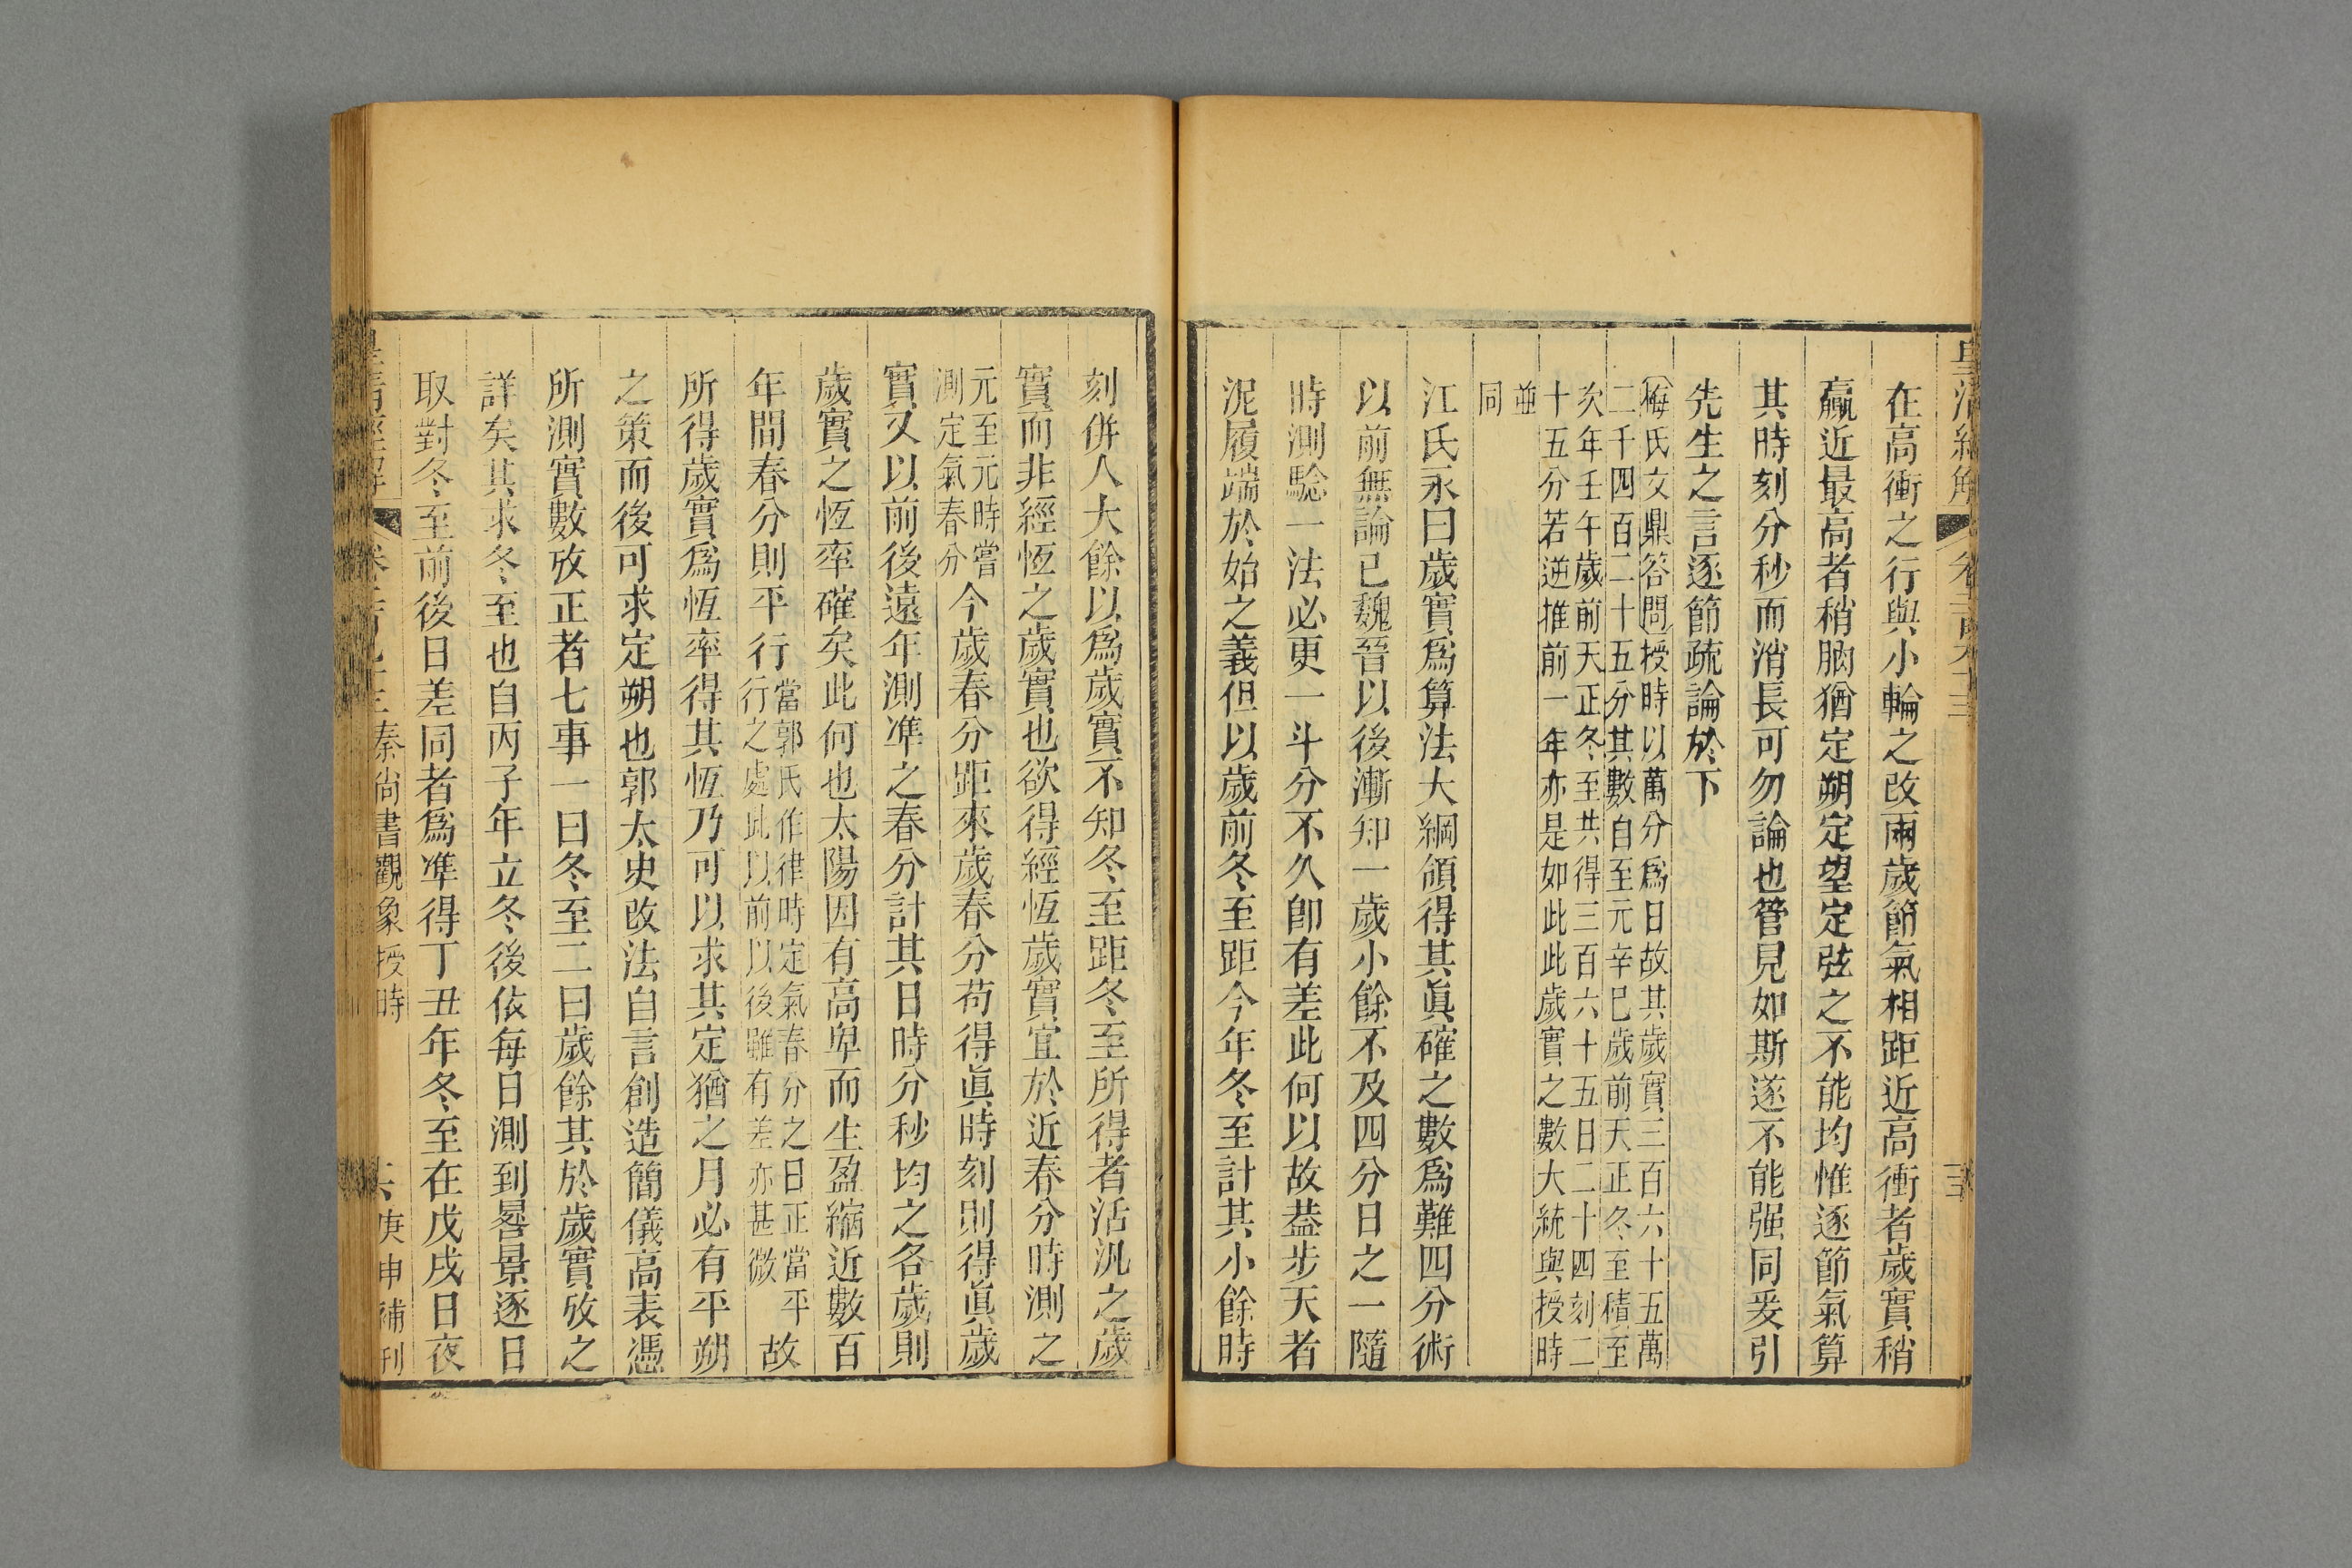 在高衝之行與小輪之改兩歲節氣相距近高衝者歲實稍
贏近最高者稍朒猶定朔定望定弦之不能均惟逐節氣算
其時刻分秒而消長可勿論也管見如斯遂不能强同爰引
先生之言逐節疏論於下
梅氏文鼎答問授時以萬分爲日故其歲實三百六十五萬
二千四百二十五分其數自至元辛巳歲前天正冬至積至
次年壬午歲前天正冬至共得三百六十五日二十四刻二
十五分若逆推前一年亦是如此此歲實之數大統與授時
並
同
江氏永曰歲實爲算法大綱領得其眞確之數爲難四分術
以前無論已魏晉以後漸知一歲小餘不及四分日之一隨
時測騐一法必更一斗分不久卽有差此何以故葢步天者
泥履端於始之義但以歲前冬至距今年冬至計其小餘時
刻併入大餘以爲歲實不知冬至距冬至所得者活汎之歲
實而非經恆之歲實也欲得經恆歲實宜於近春分時測之
元至元時嘗
測定氣春分
今歲春分距來歲春分苟得眞時刻則得眞歲
實又以前後遠年測準之春分計其日時分秒均之各歲則
歲實之恆率確矣此何也太陽因有高卑而生盈縮近數百
年間春分則平行
當郭氏作律時定氣春分之日正當平
行之處此以前以後雖有差亦甚微
故
所得歲實爲恆率得其恆乃可以求其定猶之月必有平朔
之策而後可求定朔也郭太史改法自言創造簡儀高表憑
所測實數攷正者七事一曰冬至二曰歲餘其於歲實攷之
詳矣其求冬至也自丙子年立冬後依每日測到晷景逐日
取對冬至前後日差同者爲準得丁丑年冬至在戊戌日夜
秦尚書觀象授時
庚申補刊